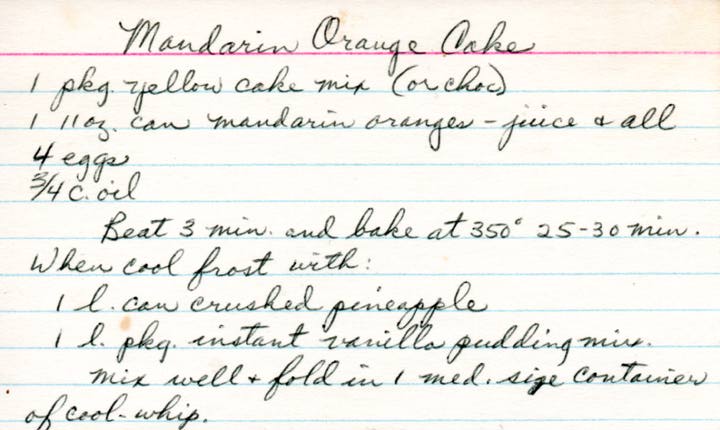 Mandarin Orange Cake
1 pkg. yellow cake mix (or choc)
1 11oz. can mandarin oranges - juice & all
4 eggs
3/4 c. oil
Beat 3 min. and bake at 350° 25-30 min.
When cool frost with:
1 l. can crushed pineapple
1 l. pkg. instant vanilla pudding mix.
mix well & fold in 1 med. size container
of cool-whip.